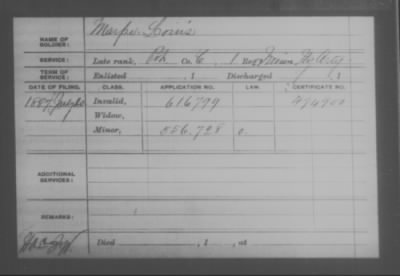 NAME OF SOLDIER: Louis
SERVICE: Late rank, Co. C, 1 Reg't
TERM OF SERVICE: Enlisted , 1 Discharged , 1
DATE OF FILING. CLASS. APPLICATION NO. LAW. CERTIFICATE NO.
1887 July Invalid, 616799
Widow,
Minor, 556.728
ADDITIONAL SERVICES:
REMARKS:
Died , 1 , at